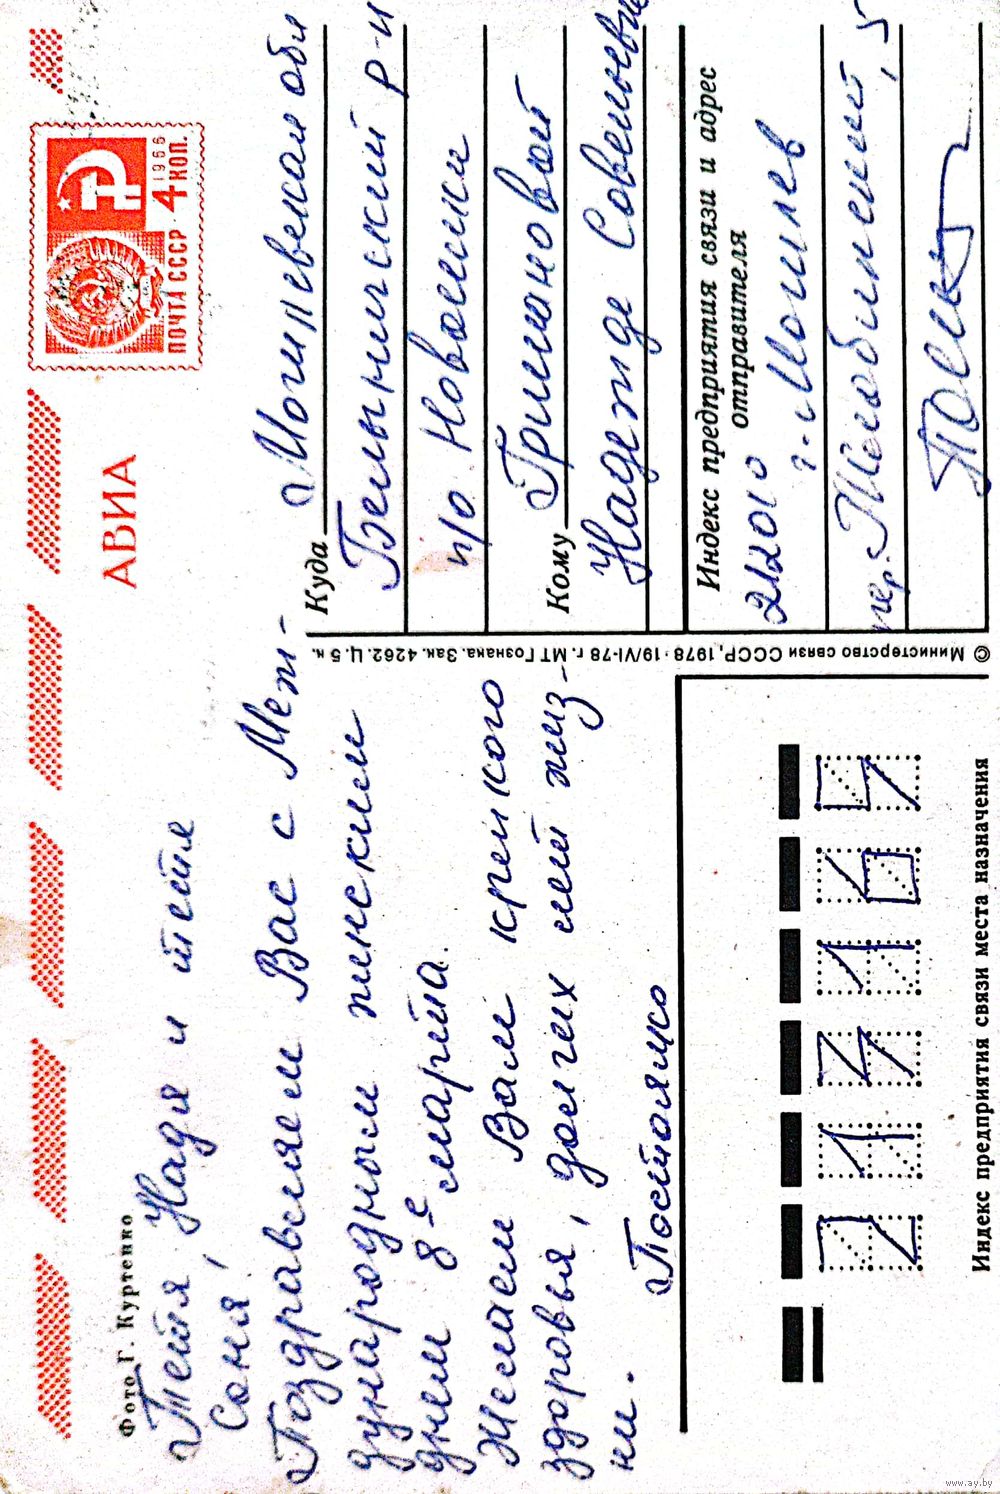 Фото Г. Куртенко
Тетя Надя и тетя
Соня,
Поздравляем Вас с Меж-
дународным женским
днем 8е марта.
Желаем Вам крепкого
здоровья, долгих лет жиз-
ни.
АВИА
1966
4 КОП.
ПОЧТА СССР
Куда Могилевская обл
Белыничский р-н
п/о Новоселки
Кому
Надежде
Индекс предприятия связи и адрес
отправителя
212010
г. Могилев
пер. 5
© Министерство связи СССР, 1978 · 19/VI-78 г. МТ Гознака. Зак. 4262. Ц. 5 к.
212165
Индекс предприятия связи места назначения
www.ay.by